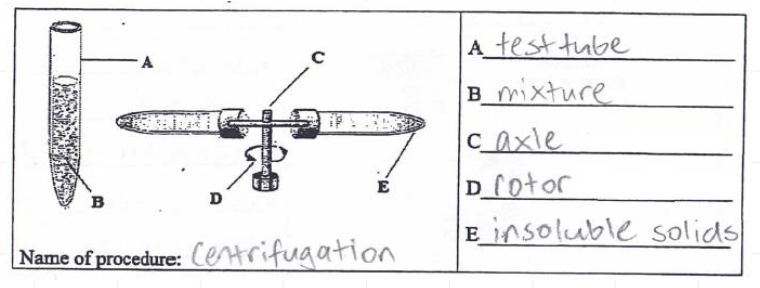 A
C
B
D
E
Name of procedure: Centrifugation
A test tube
B mixture
C axle
D rotor
E insoluble solids